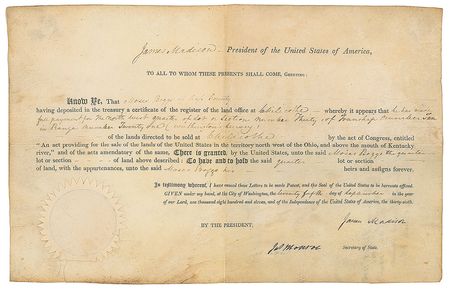 James Madison, President of the United States of America,
TO ALL TO WHOM THESE PRESENTS SHALL COME, GREETING:
Know Ye, That Moses Boggs County
having deposited in the treasury a certificate of the register of the land office at Chilicothe whereby it appears that he has made
full payment for The North west quarter of lot or Section number Thirty of Township number Ten
in Range number Twenty
of the lands directed to be sold at Chilicothe by the act of Congress, entitled
“An act providing for the sale of the lands of the United States in the territory north west of the Ohio, and above the mouth of Kentucky
river,” and of the acts amendatory of the same, There is granted, by the United States, unto the said Moses Boggs the quarter
lot or section of land above described: To have and to hold the said quarter lot or section
of land, with the appurtenances, unto the said Moses Boggs his heirs and assigns forever.
In testimony whereof, I have caused these Letters to be made Patent, and the Seal of the United States to be hereunto affixed.
GIVEN under my hand, at the City of Washington, the twenty day of September in the year
of our Lord, one thousand eight hundred and eleven, and of the Independence of the United States of America, the thirty-sixth.
James Madison
BY THE PRESIDENT,
Jas Monroe Secretary of State.